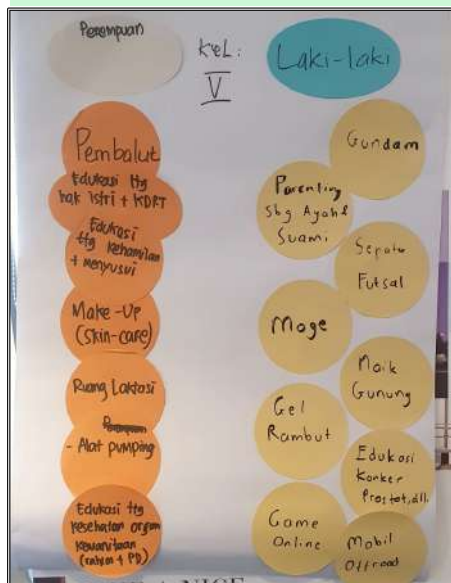 Perempuan
KEL:
V
Laki-laki
Pembalut
Edukasi ttg
hak istri + KDRT
Edukasi
ttg kehamilan
+ menyusui
Make-Up
(skin-care)
Ruang Laktasi
- Alat pumping
Edukasi ttg
kesehatan organ
kewanitaan
(rahim + PD)
Gundam
Parenting
Sbg Ayah &
Suami
Sepatu
Futsal
Moge
Naik
Gunung
Gel
Rambut
Edukasi
Kanker
Prostat, dll.
Game
Online
Mobil
Offroad